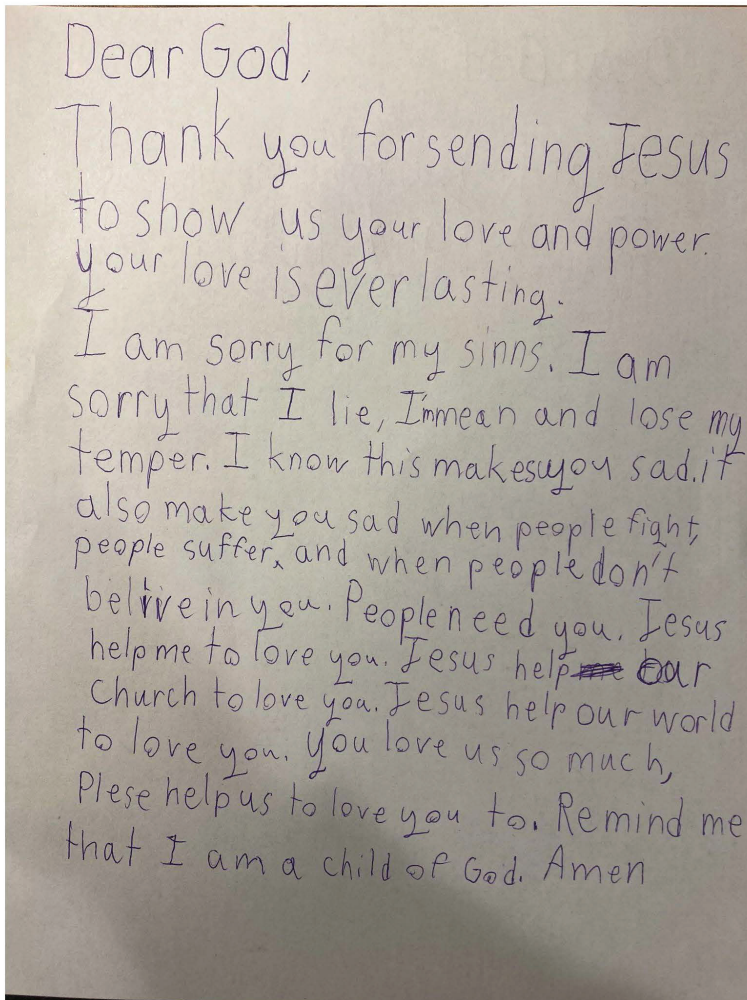 Dear God,
Thank you for sending Jesus
to show us your love and power.
your love is ever lasting.
I am sorry for my sinns. I am
sorry that I lie, I'm mean and lose my
temper. I know this makes you sad. it
also make you sad when people fight,
people suffer, and when people don't
belive in you. People need you. Jesus
help me to love you. Jesus help our
Church to love you. Jesus help our world
to love you. you love us so much,
Plese help us to love you to. Remind me
that I am a child of God. Amen